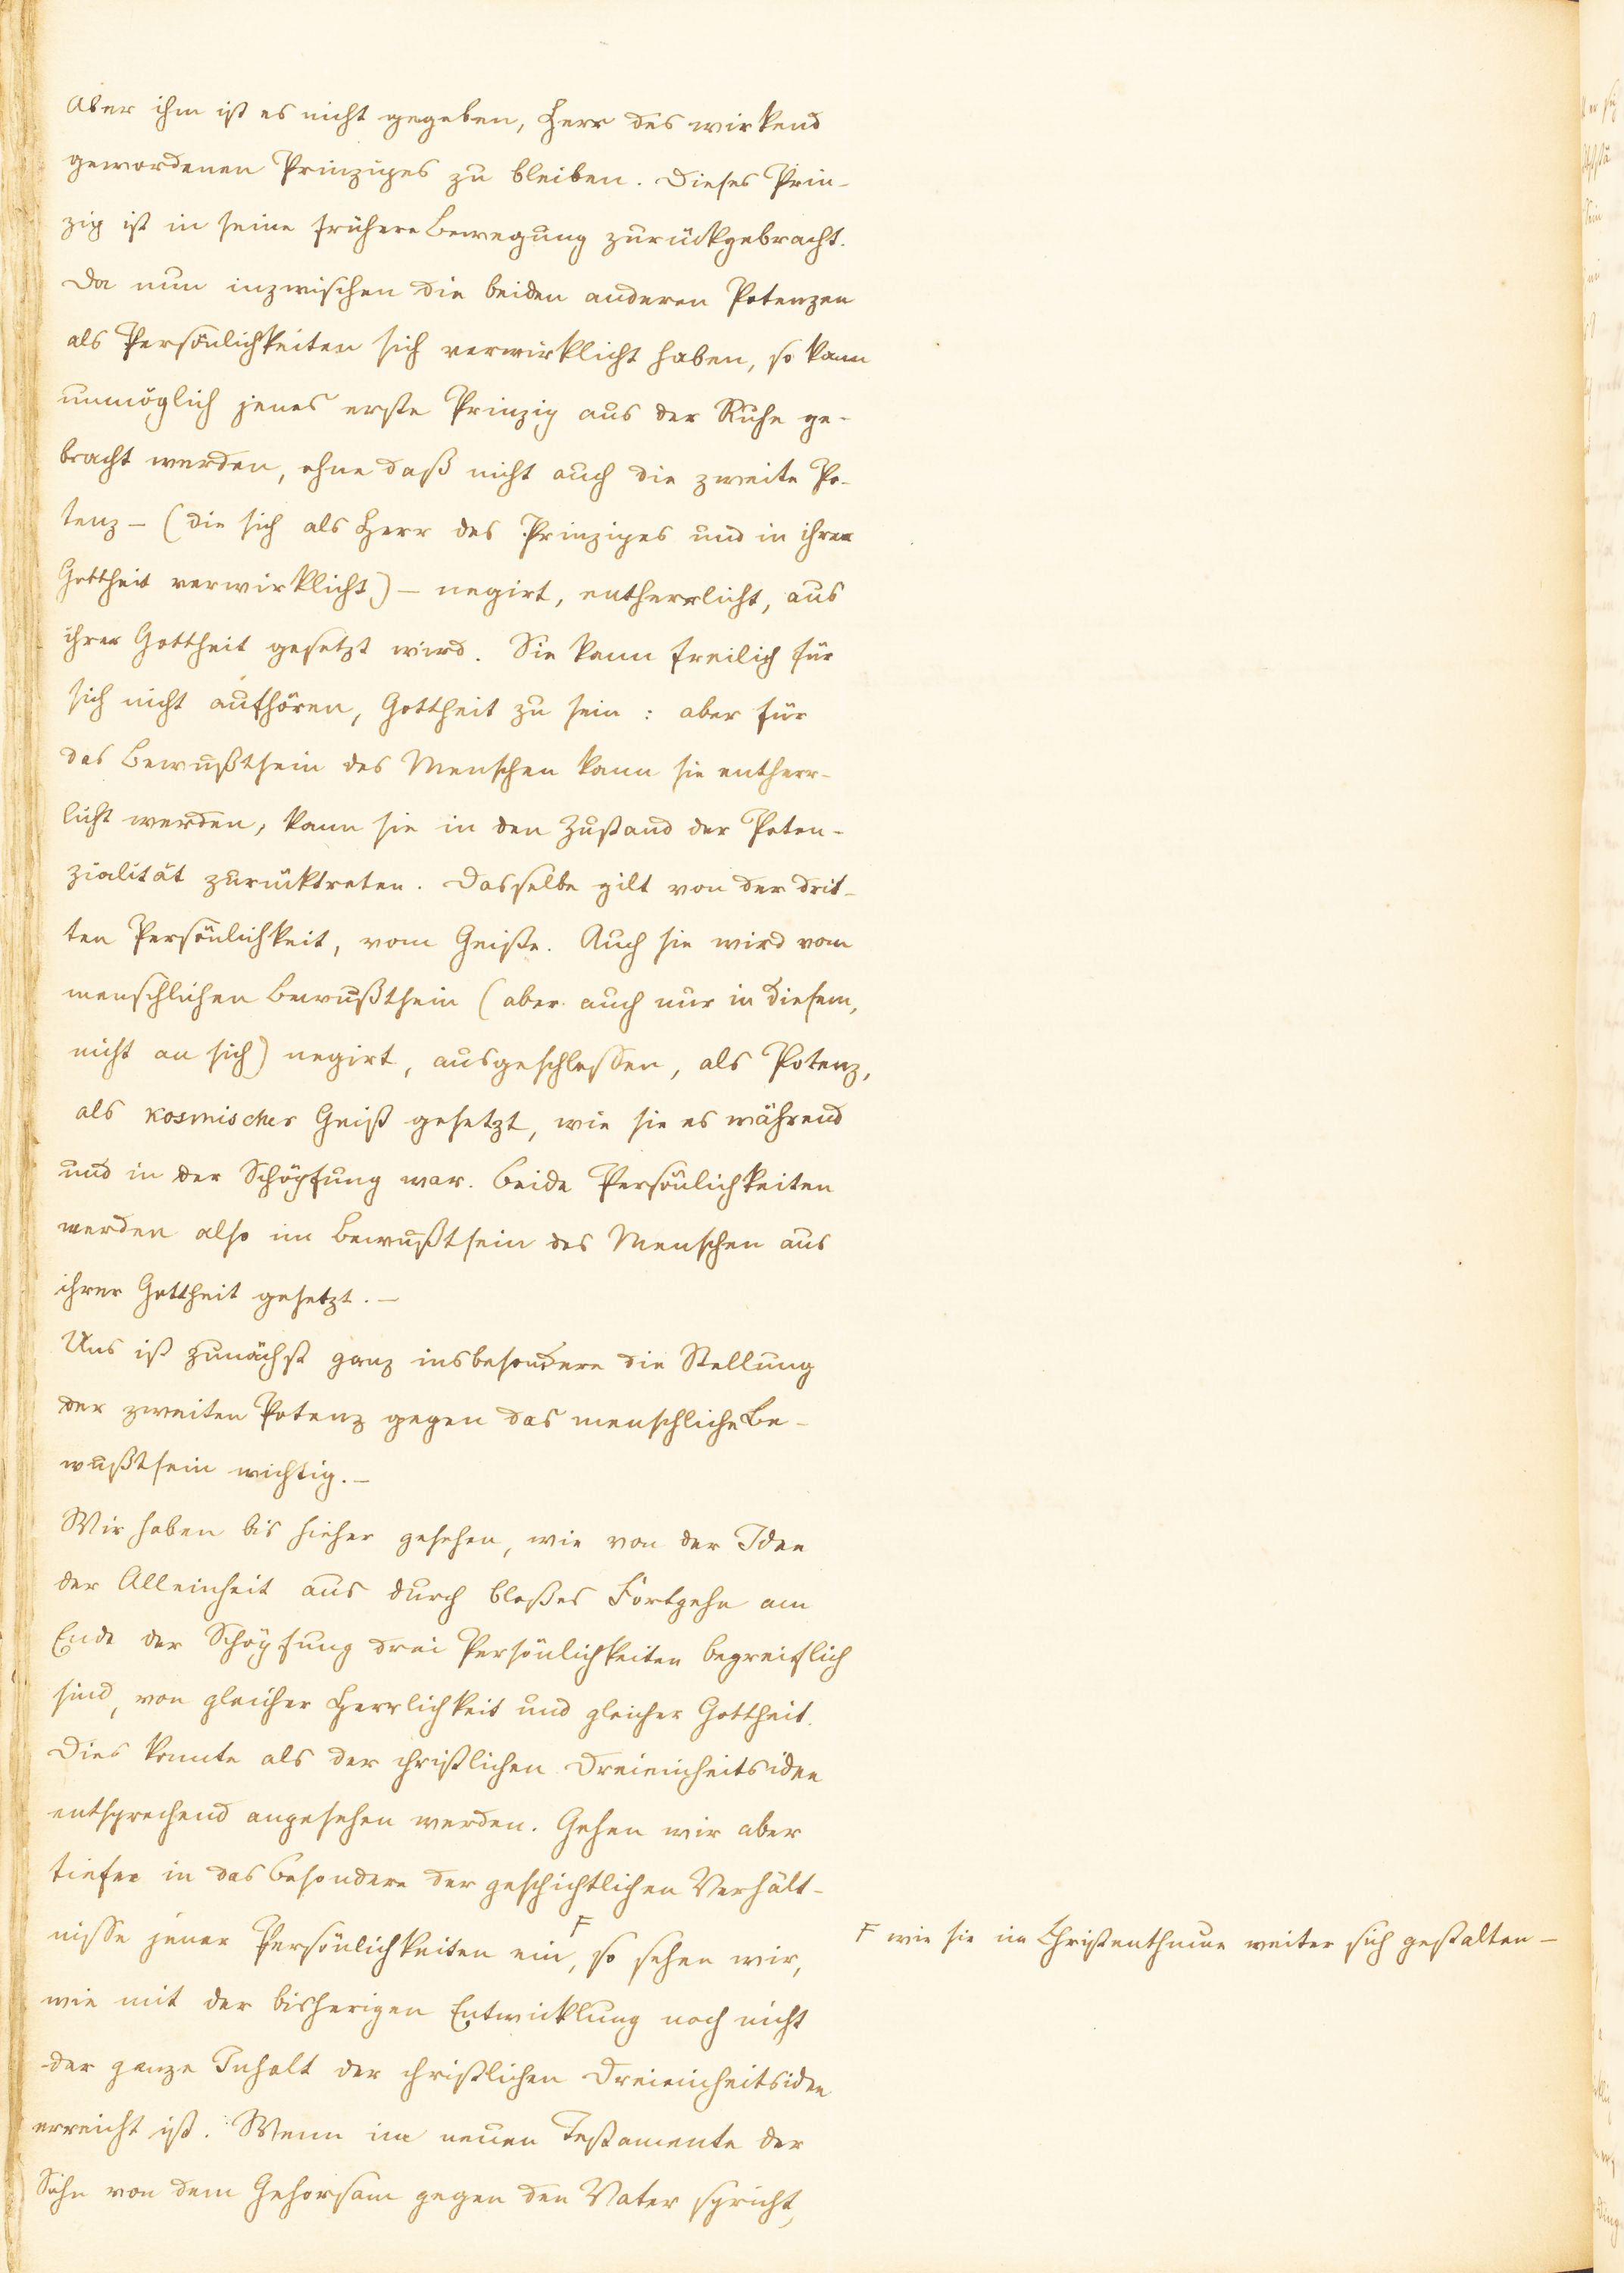 Aber ihm ist es nicht gegeben, Herr des wirkend
gewordenen Prinzipes zu bleiben. Dieses Prin-
zip ist in seine frühere Bewegung zurückgebracht.
Da nun inzwischen die beiden anderen Potenzen
als Persönlichkeiten sich verwirklicht haben, so kann
unmöglich jenes erste Prinzip aus der Ruhe ge-
bracht werden, ohne daß nicht auch die zweite Po-
tenz – (die sich als Herr des Prinzipes und in ihrer
Gottheit verwirklicht) – negirt, entherrlicht, aus
ihrer Gottheit gesetzt wird. Sie kann freilich für
sich nicht aufhören, Gottheit zu sein: aber für
das Bewußtsein des Menschen kann sie entherr-
licht werden, kann sie in den Zustand der Poten-
zialität zurücktreten. Dasselbe gilt von der drit-
ten Persönlichkeit, vom Geiste. Auch sie wird vom
menschlichen Bewußtsein (aber auch nur in diesem,
nicht an sich) negirt, ausgeschlossen, als Potenz,
als kosmischer Geist gesetzt, wie sie es während
und in der Schöpfung war. Beide Persönlichkeiten
werden also im Bewußtsein des Menschen aus
ihrer Gottheit gesetzt. –
Uns ist zunächst ganz insbesondere die Stellung
der zweiten Potenz gegen das menschliche Be-
wußtsein wichtig. –
Wir haben bis hieher gesehen, wie von der Idee
der Alleinheit aus durch bloßes Fortgehn am
Ende der Schöpfung drei Persönlichkeiten begreiflich
sind, von gleicher Herrlichkeit und gleicher Gottheit.
Dies konnte als der christlichen Dreieinheitsidee
entsprechend angesehen werden. Gehen wir aber
tiefer in das Besondere der geschichtlichen Verhält-
nisse jener Persönlichkeiten ein F, so sehen wir,
F wie sie im Christenthume weiter sich gestalten –
wie mit der bisherigen Entwicklung noch nicht
der ganze Inhalt der christlichen Dreieinheitsidee
erreicht ist. Wenn im neuen Testamente der
Sohn von dem Gehorsam gegen den Vater spricht,